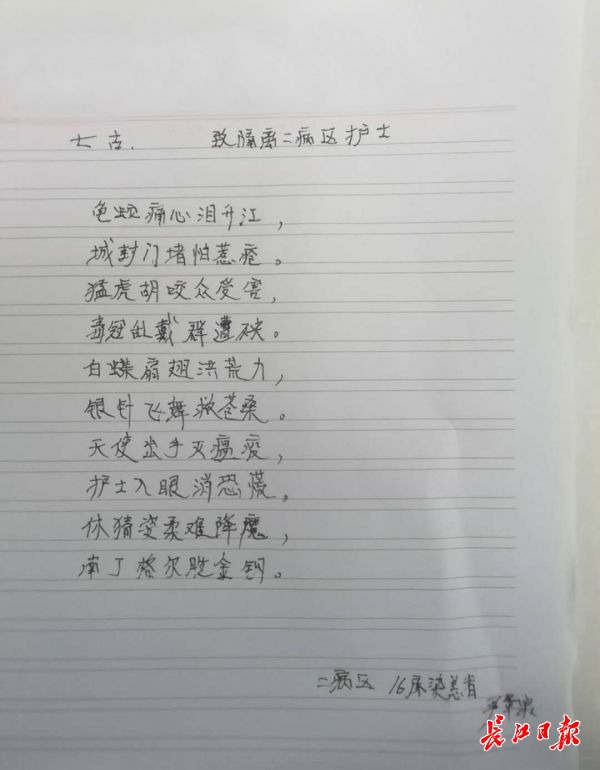 七古. 致隔离二病区护士
龟蛇痛心泪升江，
城封门堵怕惹疮。
猛虎胡咬众受害，
毒冠乱戴群遭殃。
白蝶扇翅洪荒力，
银针飞舞救苍桑。
天使出手灭瘟疫，
护士入眼消恐慌。
休猜姿柔难降魔，
南丁格尔胜金钢。
二病区 16床染恙者
长江日报